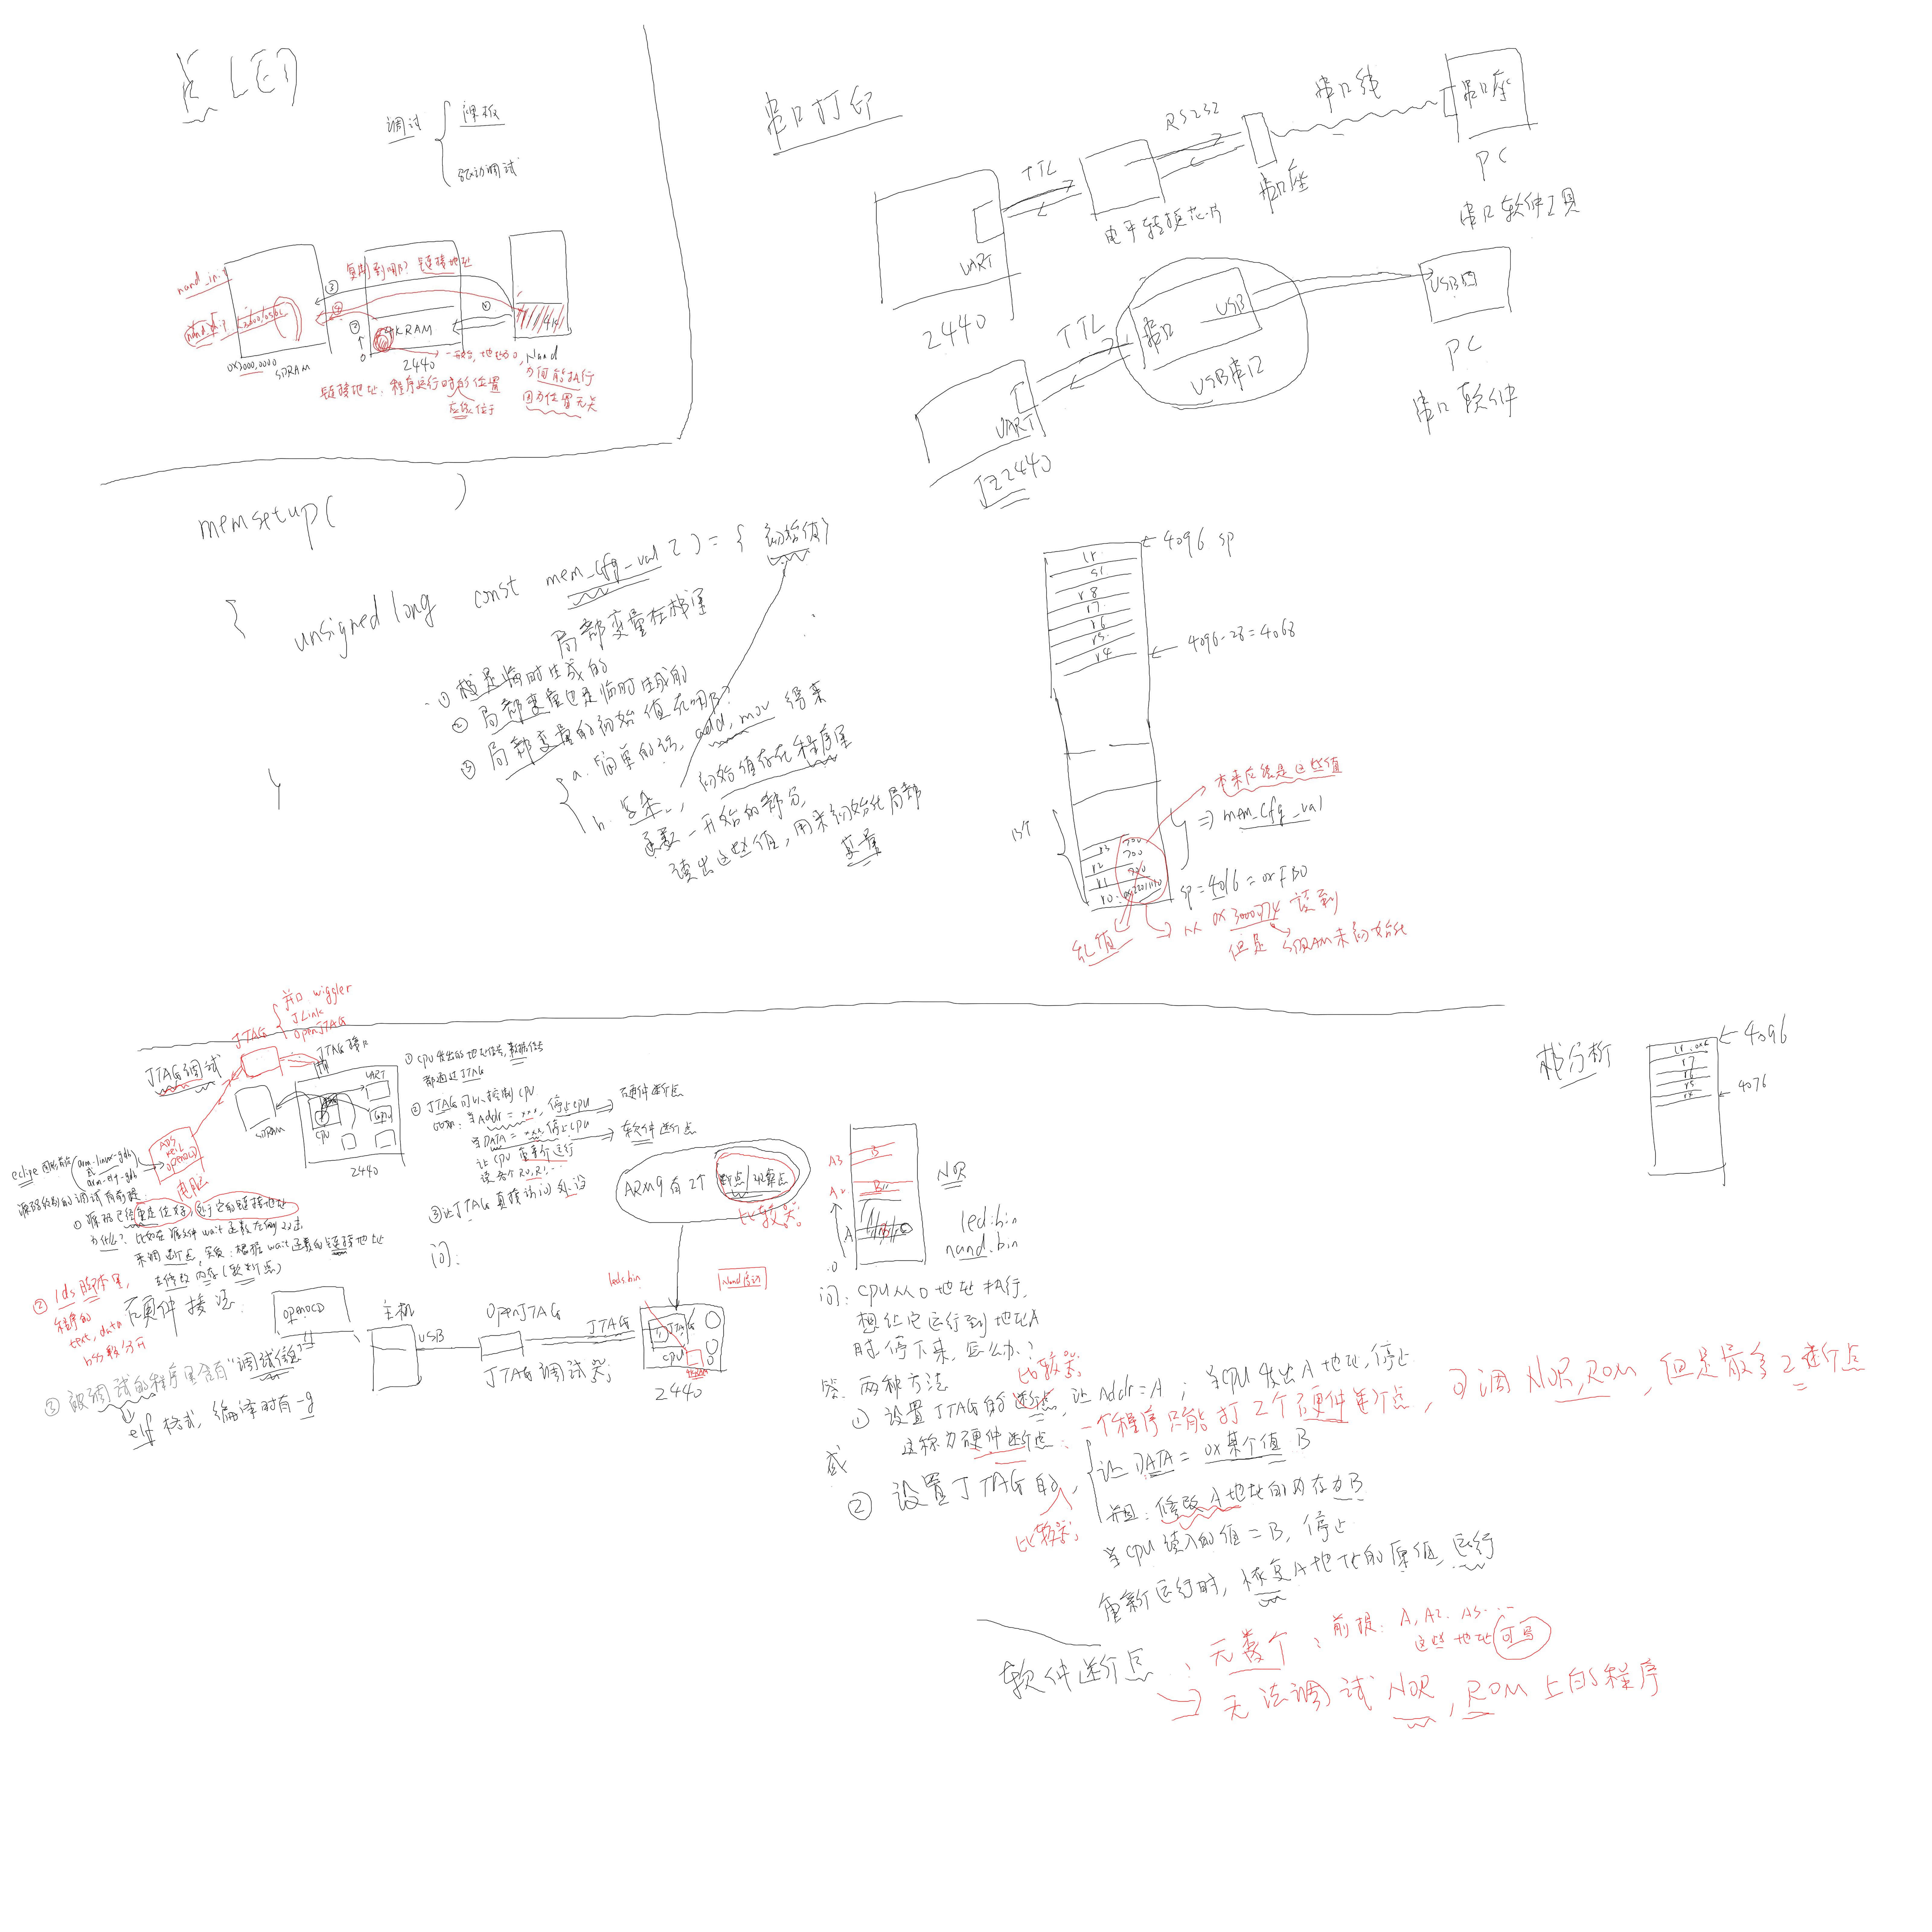 点 LED
调试
裸板
驱动调试
nand_in..
复制到哪? 链接地址
③
④
②
①
0
4K
4KRAM
0x3000,0000
SDRAM
2440
Nand
一开始, 地址0,
为何能执行
因为位置无关
链接地址: 程序运行时的位置
应该位于
串口打印
UART
2440
TTL
电平转换芯片
RS232
串口座
串口线
串口座
PC
串口软件工具
UART
JZ2440
TTL
串口
USB
USB串口
USB口
PC
串口软件
memsetup( )
{
unsigned long const mem_cfg_val[] = { 初始值}
局部变量在栈里
① 栈是临时生成的
② 局部变量也是临时生成的
③ 局部变量的初始值在哪?
a. 简单的话, add, mov 得来
b. 复杂.., 初始值存在程序里
函数一开始的部分,
读出这些值, 用来初始化局部
变量
}
4096 sp
lr
sl
r8
r7
r6
r5
r4
4096-28=4068
13个
r3
r2
r1
r0
700
700
本来应该是这些值
=> mem_cfg_val
sp=4016=0xFB0
乱值
从 0x30000774 读到
但是 SDRAM未初始化
JTAG调试
JTAG
并口 wiggler
JLink
OpenJTAG
JTAG接口
UART
SDRAM
CPU
2440
ADS
Keil
openocd
电脑
eclipse 图形前端
arm-linux-gdb
或
arm-elf-gdb
源码级别的调试有前提:
① 源码已经重定位好, 处于它的链接地址
为什么? 比如在源文件 wait 函数在某行双击
来调断点, 实质: 根据 wait 函数的链接地址
去修改内存(软断点)
② lds脚本里,
程序的
text, data
bss段分开
③ 被调试的程序里含有“调试信息”
elf 格式, 编译时有 -g
① CPU发出的地址信号,数据信号
都通过JTAG
② JTAG可以控制CPU
比如: 当Addr = xxx, 停止CPU
硬件断点
当DATA = xxx, 停止CPU
软件断点
让 CPU 重新运行
读各个R0,R1,...
③ 让JTAG直接访问外设
问:
ARM9 有2个
断点/观察点
比较器
硬件接法:
openocd
主机
USB
OpenJTAG
JTAG调试器
JTAG
leds.bin
Nand启动
JTAG
CPU
2440
A3
B
A2
B
A
0
NOR
led.bin
nand.bin
问: CPU从0地址执行,
想让它运行到地址A
时停下来, 怎么办?
答: 两种方法
比较器
① 设置JTAG的断点, 让 Addr=A ; 当CPU发出A地址, 停止
这称为硬件断点: 一个程序只能打2个硬件断点, 可调NOR,ROM, 但是最多2断点
或
② 设置JTAG的,
比较器
让 DATA = 0x某个值 B
并且: 修改A地址的内存为B
当CPU读入的值=B, 停止
重新运行时, 恢复A地址的原值, 运行
软件断点: 无数个, 前提: A, A2, A3...
这些地址可写
无法调试 NOR, ROM上的程序
栈分析
4096
lr
r7
r6
r5
r4
4076